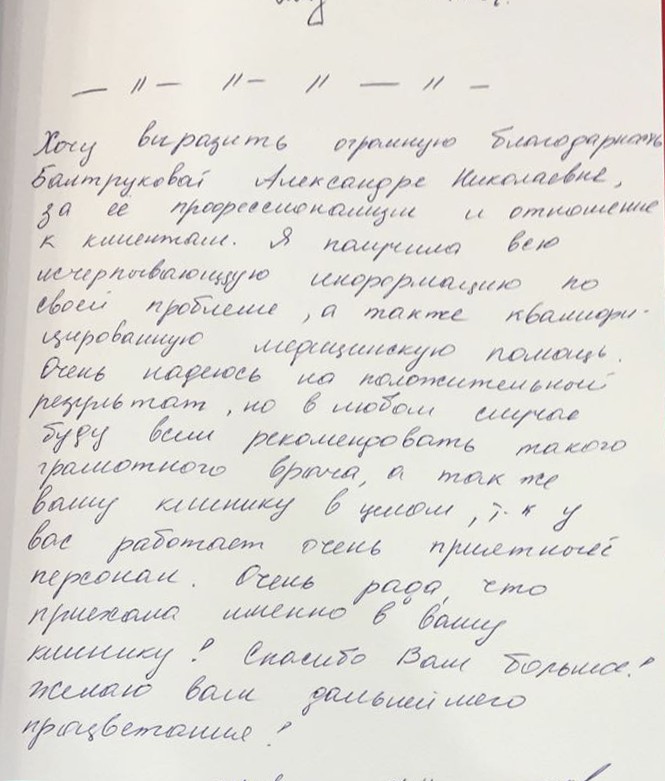 — 〃 — 〃 — 〃 — 〃 —
Хочу выразить огромную благодарность
Балтруковой Александре Николаевне,
за её профессионализм и отношение
к клиентам. Я получила всю
исчерпывающую информацию по
своей проблеме, а также квалифи-
цированную медицинскую помощь.
Очень надеюсь на положительный
результат, но в любом случае
буду всем рекомендовать такого
грамотного врача, а так же
вашу клинику в целом, т.к у
вас работает очень приятный
персонал. Очень рада, что
приехала именно в вашу
клинику! Спасибо Вам большое!
Желаю вам дальнейшего
процветания!